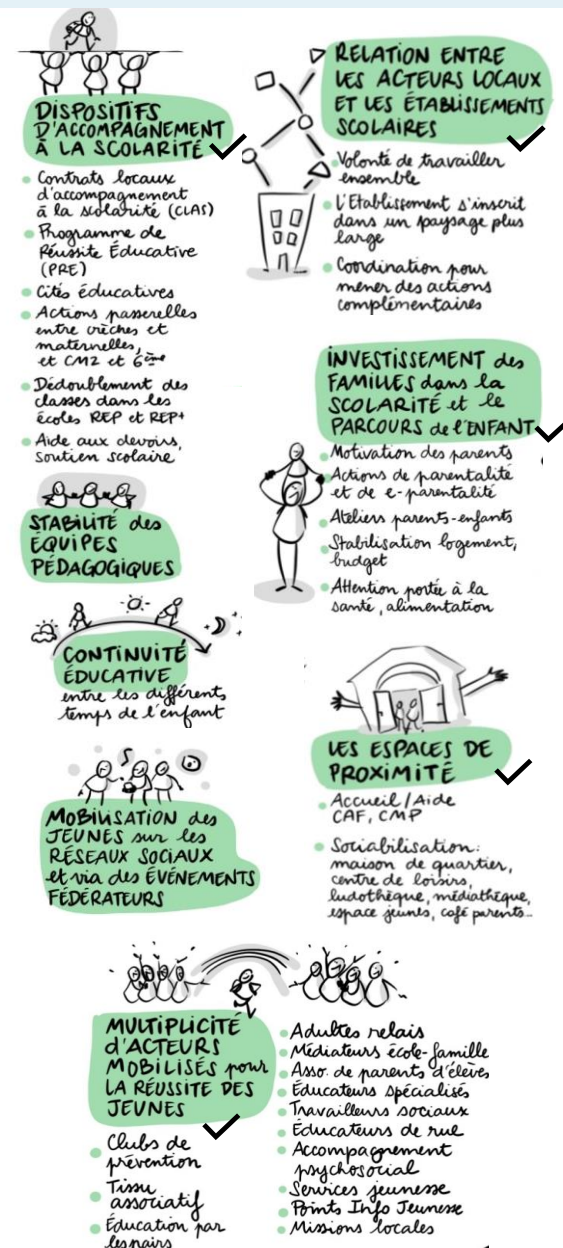 DISPOSITIFS
D'ACCOMPAGNEMENT
À LA SCOLARITÉ
Contrats locaux
d'accompagnement
à la scolarité (CLAS)
Programme de
Réussite Éducative
(PRE)
Cités éducatives
Actions passerelles
entre crèches et
maternelles,
et CM2 et 6ème
Dédoublement des
classes dans les
écoles REP et REP+
Aide aux devoirs,
soutien scolaire
STABILITÉ des
ÉQUIPES
PÉDAGOGIQUES
CONTINUITÉ
ÉDUCATIVE
entre les différents
temps de l'enfant
MOBILISATION des
JEUNES sur les
RÉSEAUX SOCIAUX
et via des ÉVÉNEMENTS
FÉDÉRATEURS
RELATION ENTRE
LES ACTEURS LOCAUX
ET LES ÉTABLISSEMENTS
SCOLAIRES
Volonté de travailler
ensemble
L'Etablissement s'inscrit
dans un paysage plus
large
Coordination pour
mener des actions
complémentaires
INVESTISSEMENT des
FAMILLES dans la
SCOLARITÉ et le
PARCOURS de l'ENFANT
Motivation des parents
Actions de parentalité
et de e-parentalité
Ateliers parents-enfants
Stabilisation logement,
budget
Attention portée à la
santé, alimentation
LES ESPACES DE
PROXIMITÉ
Accueil/Aide
CAF, CMP
Sociabilisation:
maison de quartier,
centre de loisirs,
ludothèque, médiathèque,
espace jeunes, café parents...
MULTIPLICITÉ
d'ACTEURS
MOBILISÉS pour
LA RÉUSSITE DES
JEUNES
Clubs de
prévention
Tissu
associatif
Éducation par
les pairs
Adultes relais
Médiateurs école-famille
Asso. de parents d'élèves
Éducateurs spécialisés
Travailleurs sociaux
Éducateurs de rue
Accompagnement
psychosocial
Services jeunesse
Points Info Jeunesse
Missions locales